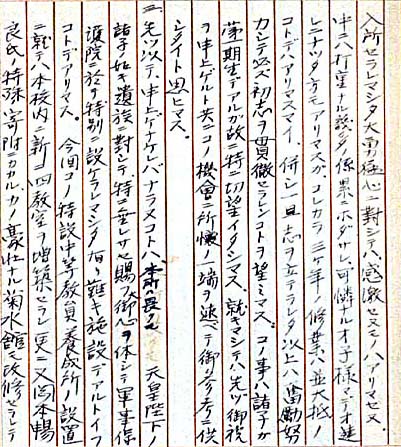 入所セラレマシタ大勇猛心ニ対シテハ、感激セヌモノハアリマセヌ。
中ニハ打座ナル設ケノ係累ニホダサレ、可憐ナルオ子様ヲオ連
レニナツタ方モアリマスガ、コレカラ三ケ年ノ修業ハ並大抵ノ
コトデハアリマスマイ、併シ一旦志ヲ立テラレタ以上ハ奮励努
力シテ必ズ初志ヲ貫徹セラレンコトヲ望ミマス。コノ事ハ諸子ガ
第一期生デアルガ故ニ特ニ切望イタシマス。就キマシテハ先ヅ御祝
ヲ申上ゲルト共ニコノ機會ニ所懐ノ一端ヲ述ベテ御参考ニ供
シタイト思ヒマス。
二、先ヅ以テ、申上ゲナケレバナラヌコトハ、本所ハ畏クモ 天皇陛下ノ
諸子如キ遺族ニ対シテ、特ニ垂レサセ賜フ大御心ヲ体シテ軍事保
護院ガ特別ニ設ケラレマシタ有リ難キ施設デアルトイフ
コトデアリマス。今回コノ特設中等教員養成所ノ設置
ニ就テハ本校内ニ新ニ四教室ヲ増築セラレ、更ニ又岡本暢
良氏ノ特殊寄附ニカカル、カノ豪壮ナル菊水館ヲ改修セラレテ